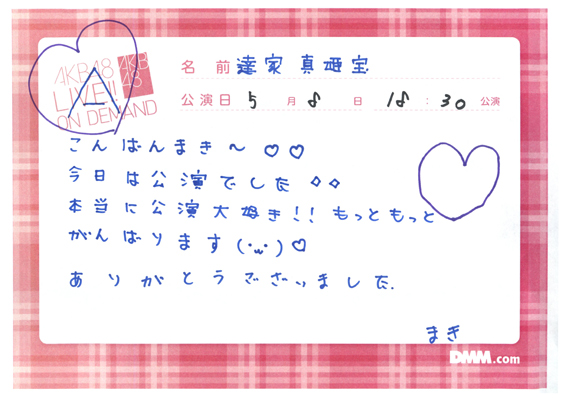 AKB48
LIVE!!
ON DEMAND
AKB
48
A
名前 達家真姫宝
公演日 5月8日 18:30公演
こんばんまき〜♡♡
今日は公演でした✧✧
本当に公演大好き!!もっともっと
がんばります(・ω・)♡
ありがとうございました.
まき
DMM.com